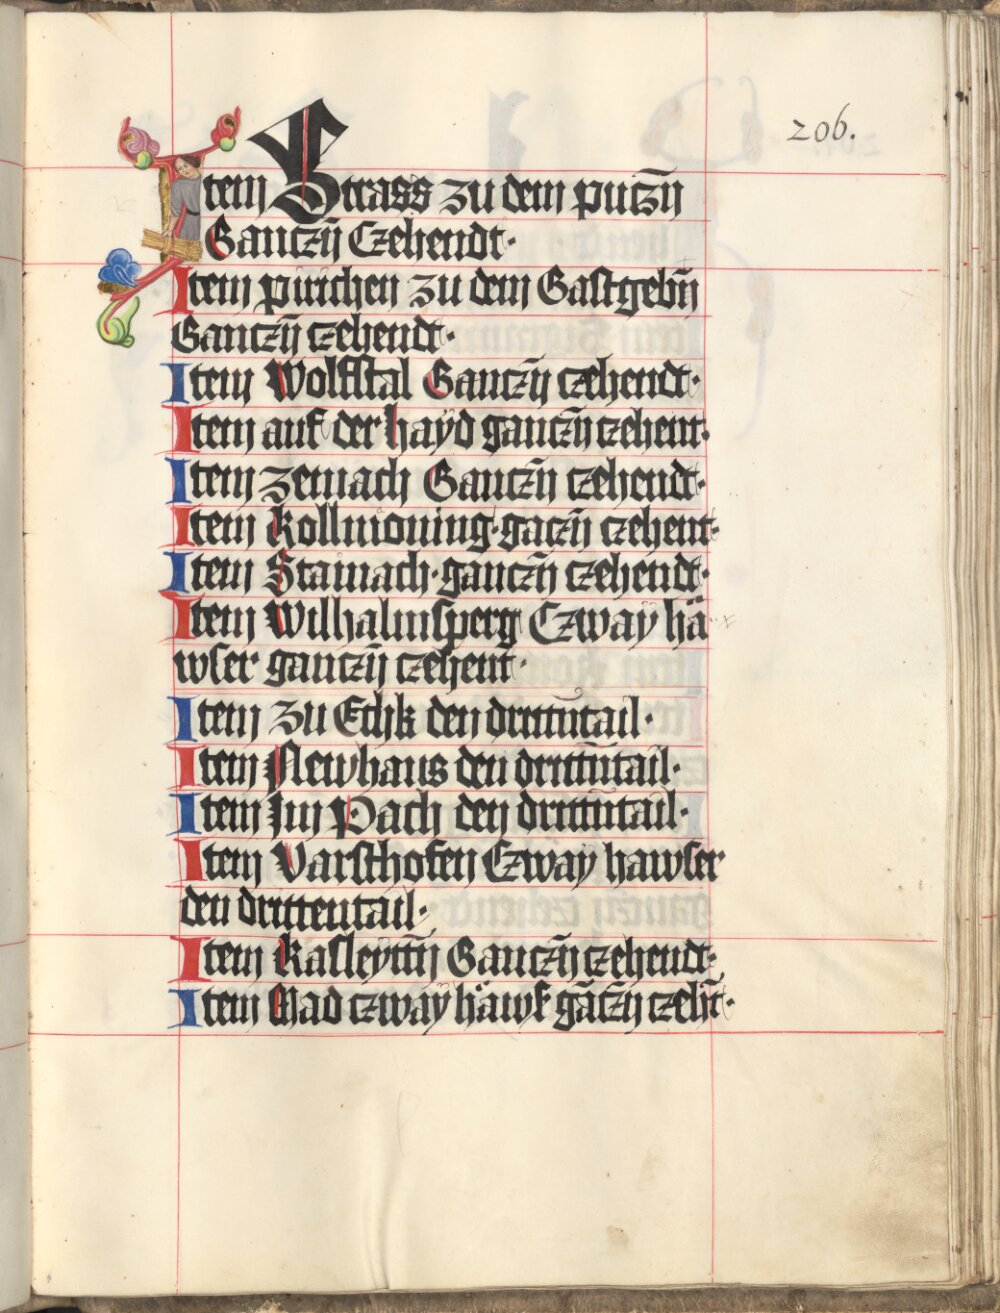 206.
Item Strass zu dem putzñ
Ganczñ Czehendt·
Item pirichen zu dem Gastgebñ
Ganczñ czehendt·
Item Wolfstal Ganczñ czehendt·
Item auf der hayd ganczñ czehent·
Item zemach Ganczñ czehendt·
Item Kollmoning·gaczñ czehent·
Item Stainach·ganczñ czehendt·
Item Wilhalmsperg Czway hä
wser ganczñ czehent·
Item zu Ethk den drittntail·
Item Newhaus den drittntail·
Item Im Pach den drittntail·
Item Varsthofen Czway hawser
den drittentail·
Item Rasleyttñ Ganczñ czehendt·
Item Mad czway häwß gãczñ czehñt·